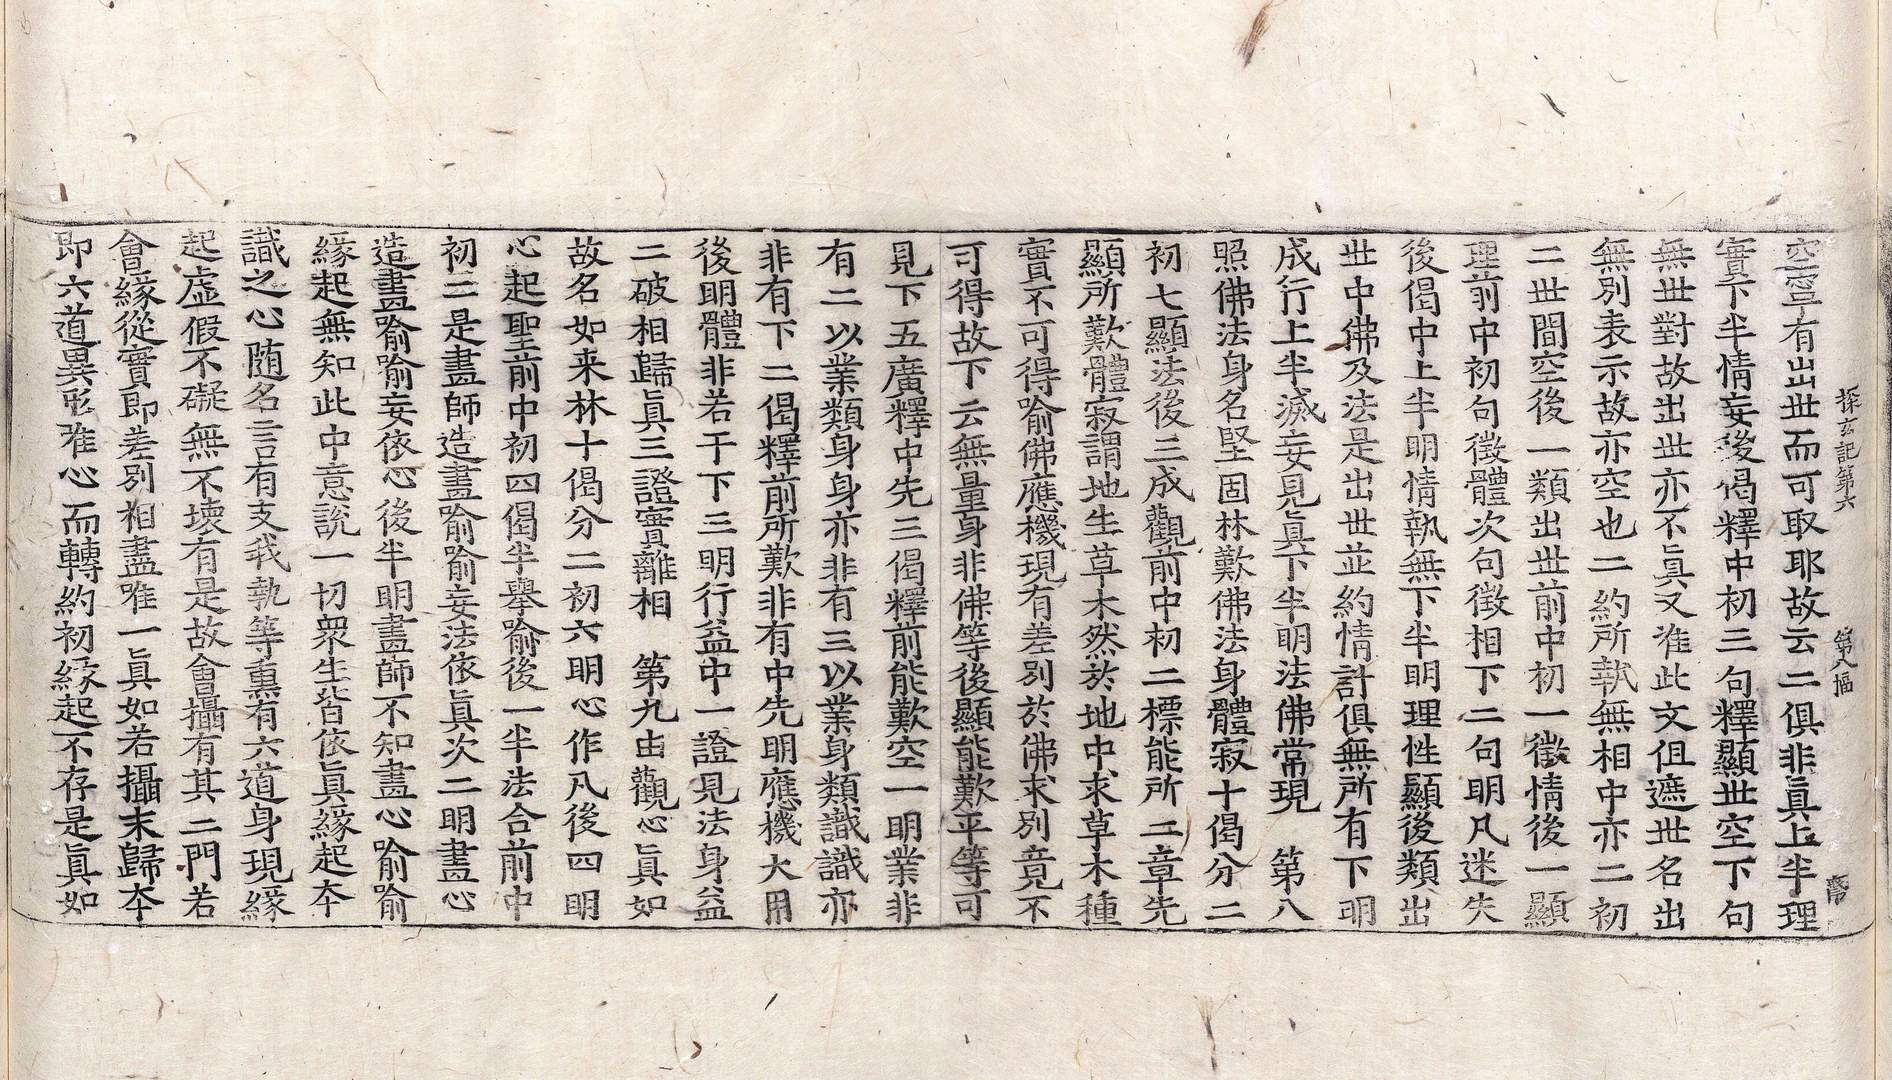 探玄記第六　第八幅　齊
空寧有出世而可取耶故云二俱非真上半理
實下半情妄後偈釋中初三句釋顯世空下句
無世對故出世亦不真又准此文但遮世名出
無別表示故亦空也二約所執無相中亦二初
二世間空後一類出世前中初一徵情後一顯
理前中初句徵體次句徵相下二句明凡迷失
後偈中上半明情執無下半明理性顯後類出
世中佛及法是出世並約情計俱無所有下明
成行上半滅妄見真下半明法佛常現　第八
照佛法身名堅固林歎佛法身體寂十偈分二
初七顯法後三成觀前中初二標能所二章先
顯所歎體寂謂地生草木然於地中求草木種
實不可得喻佛應機現有差別於佛求別竟不
可得故下云無量身非佛等後顯能歎平等可
見下五廣釋中先三偈釋前能歎空一明業非
有二以業類身身亦非有三以業身類識識亦
非有下二偈釋前所歎非有中先明應機大用
後明體非若干下三明行益中一證見法身益
二破相歸真三證實離相　第九由觀心真如
故名如来林十偈分二初六明心作凡後四明
心起聖前中初四偈半舉喻後一半法合前中
初二是畫師造畫喻喻妄法依真次二明畫心
造畫喻喻妄依心後半明畫師不知畫心喻喻
緣起無知此中意説一切衆生皆依真緣起本
識之心随名言有支我執等熏有六道身現緣
起虛假不礙無不壊有是故會攝有其二門若
會緣從實即差別相盡唯一真如若攝末歸本
即六道異形唯心而轉約初緣起不存是真如